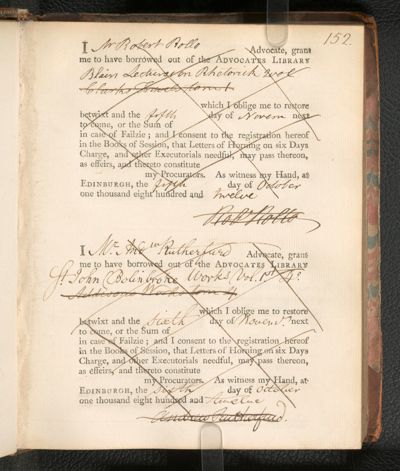 152.
I Mr Robert Rollo Advocate, grant
me to have borrowed out of the ADVOCATES LIBRARY
Blairs Lectures on Rhetorick vol
which I oblige me to restore
betwixt and the fifth day of Novem next
to come, or the Sum of
in case of Failzie; and I consent to the registration hereof
in the Books of Session, that Letters of Horning on six Days
Charge, and other Executorials needful, may pass thereon,
as effeirs, and thereto constitute
my Procurators. As witness my Hand, at
EDINBURGH, the fifth day of October
one thousand eight hundred and twelve
Robt Rollo
I Mr Andw Rutherfurd Advocate, grant
me to have borrowed out of the ADVOCATES LIBRARY
St John Bolinbroke Works, Vol. 1st 4o
Addisons Works tom
which I oblige me to restore
betwixt and the Sixth day of Novemr next
to come, or the Sum of
in case of Failzie; and I consent to the registration hereof
in the Books of Session, that Letters of Horning on six Days
Charge, and other Executorials needful, may pass thereon,
as effeirs, and thereto constitute
my Procurators. As witness my Hand, at
EDINBURGH, the Sixth day of October
one thousand eight hundred and twelve
Andrew Rutherfurd.